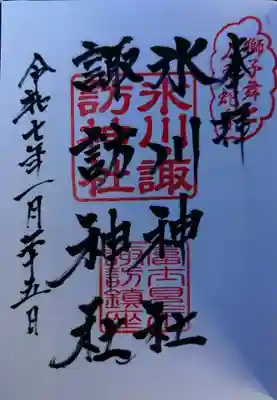 奉拝
氷川神社
諏訪神社
令和七年一月二十五日
獅子舞
氷川諏
訪神社